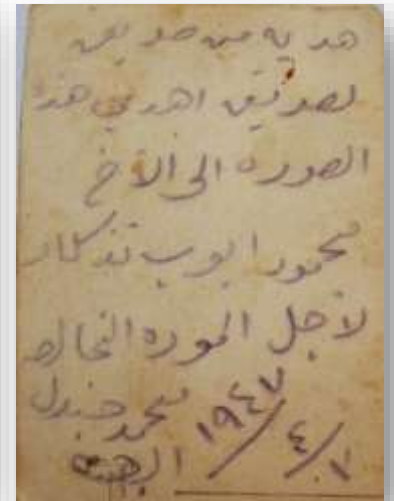 هديه من صديق
لصديق اهدي هذه
الصوره الى الأخ
محمود ايوب تذكار
لأجل الموده الخالصه
محمد جندل
١٩٤٧/٤/٧